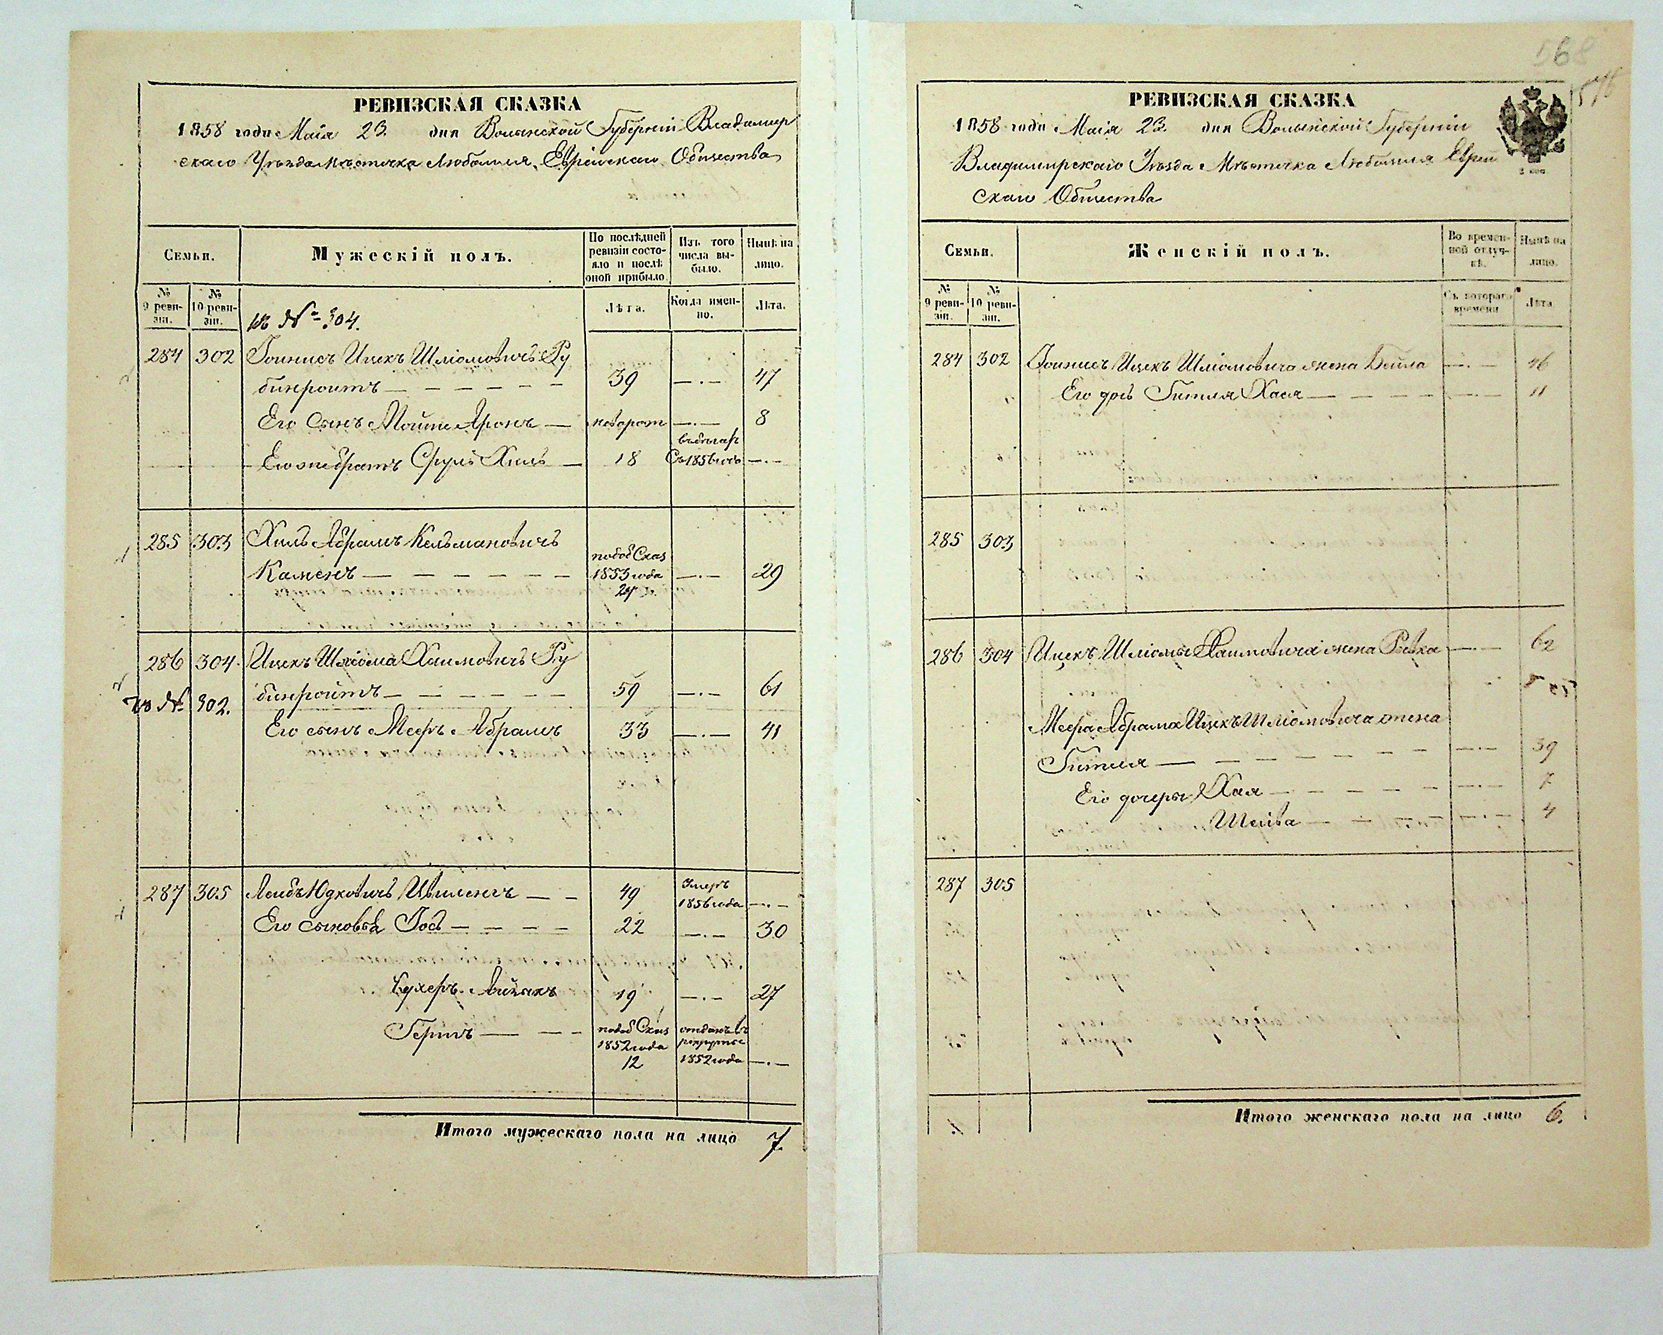 РЕВИЗСКАЯ СКАЗКА
1858 года Маія 23. дня Волынской Губерніи Владимир
скаго Уѣзда Мѣстечка Любомля Еврейскаго Общества
Семьи.
Мужескій полъ.
По послѣдней ревизіи состояло и послѣ оной прибыло.
Изъ того числа выбыло.
Нынѣ на лицо.
№ 9 ревизіи.
№ 10 ревизіи.
Лѣта.
Когда именно.
Лѣта.
къ № 304.
284 302 Ицекъ Шліомовичъ Ру
бинроитъ 39 47
Его сынъ Аронъ 8
Его же братъ Сруль Хиль 18 Съ 1856 года
285 303 Хиль Абрамъ Кельмановичъ
Каменъ 1853 года 24 29
286 304 Ицекъ Шліома Хаимовичъ Ру
бинроитъ 59 61
къ № 302.
Его сынъ Мееръ Абрамъ 33 41
287 305 Лейбъ Юдковичъ 49 умеръ 1856 года
Его сыновья 22 30
19 27
Гершъ 1852 года 12 отданъ въ рекруты 1852 года
Итого мужескаго пола на лицо 7.
568
576
РЕВИЗСКАЯ СКАЗКА
1858 года Маія 23. дня Волынской Губерніи
Владимирскаго Уѣзда Мѣстечка Любомля Еврей
скаго Общества
Семьи.
Женскій полъ.
Во временной отлучкѣ.
Нынѣ на лицо.
№ 9 ревизіи.
№ 10 ревизіи.
Съ котораго времени.
Лѣта.
284 302 Ицекъ Шліомовича жена Бейла 46
Его дочь Гитля Хася 11
285 303
286 304 Ицекъ Шліомы Хаимовича жена Ривка 62
Меера Абрама Ицекъ Шліомовича жена
Гитля 39
Его дочери Хая 7
Шейва 4
287 305
Итого женскаго пола на лицо 6.